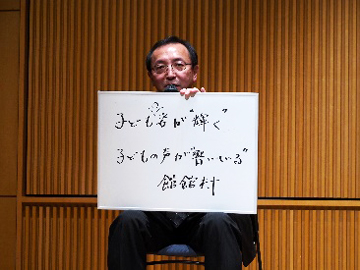 子どもが"輝く"
子どもの声が"響いている"
飯舘村